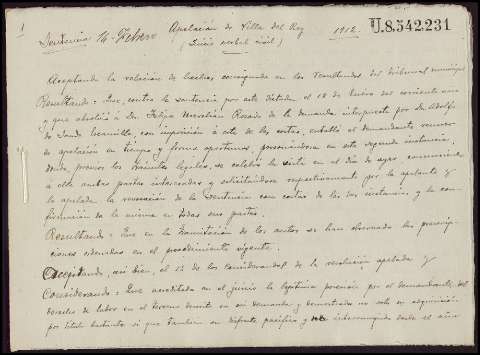 1
Sentencia 14-Febrero
Apelación de Villa del Rey
1912.
U.8.542.231
(Juicio verbal civil)
Aceptando la relacion de hechos consignada en los Resultandos del Tribunal municipal
Resultando: Que, contra la sentencia por este dictada en 18 de Enero del corriente año
y que absolvió á Dn. Felipe Rosado de la demanda interpuesta por Dn. Adolfo
de Sande con imposición á este de las costas, entabló el demandante recurso
de apelación en tiempo y forma oportunos, personándose en esta segunda instancia,
donde, previos los trámites legales, se celebró la vista en el día de ayer,
á ella ambas partas interesadas y solicitándose respectivamente por la apelante y
la apelada, la revocación de la Sentencia con costas de las dos instancias y la con-
firmación de la misma en todas sus partes.
Resultando: Que en la tramitación de los autos se han observado las prescrip-
ciones ordenadas en el procedimiento vigente.
Aceptando, así bien, el 1º de los Considerandos de la resolución apelada y
Considerando: Que acreditada en el juicio la legítima posesión por el demandante, del
de labor en el terreno descrito en su demanda y demostrada no solo su adquisición
por título bastante si que tambien su disfrute pacífico y no interrumpido desde el año